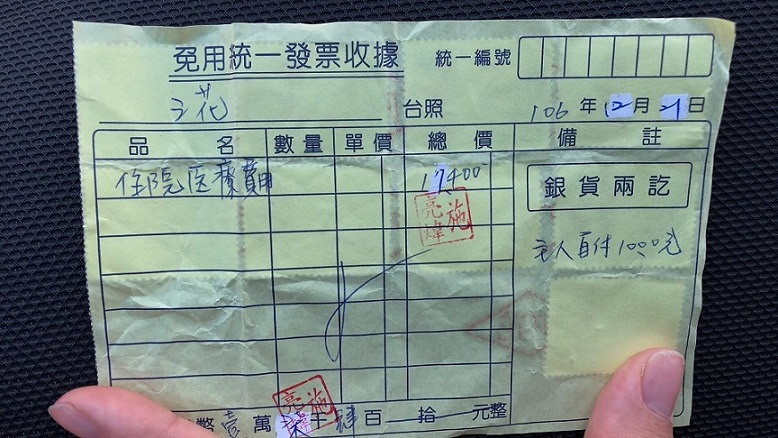 免用統一發票收據
統一編號
三花 台照 106年12月21日
品名 數量 單價 總價 備註
住院医療費用 17400
銀貨兩訖
主人自付1000元
施亮煒
施亮
幣壹萬柒千肆百拾元整